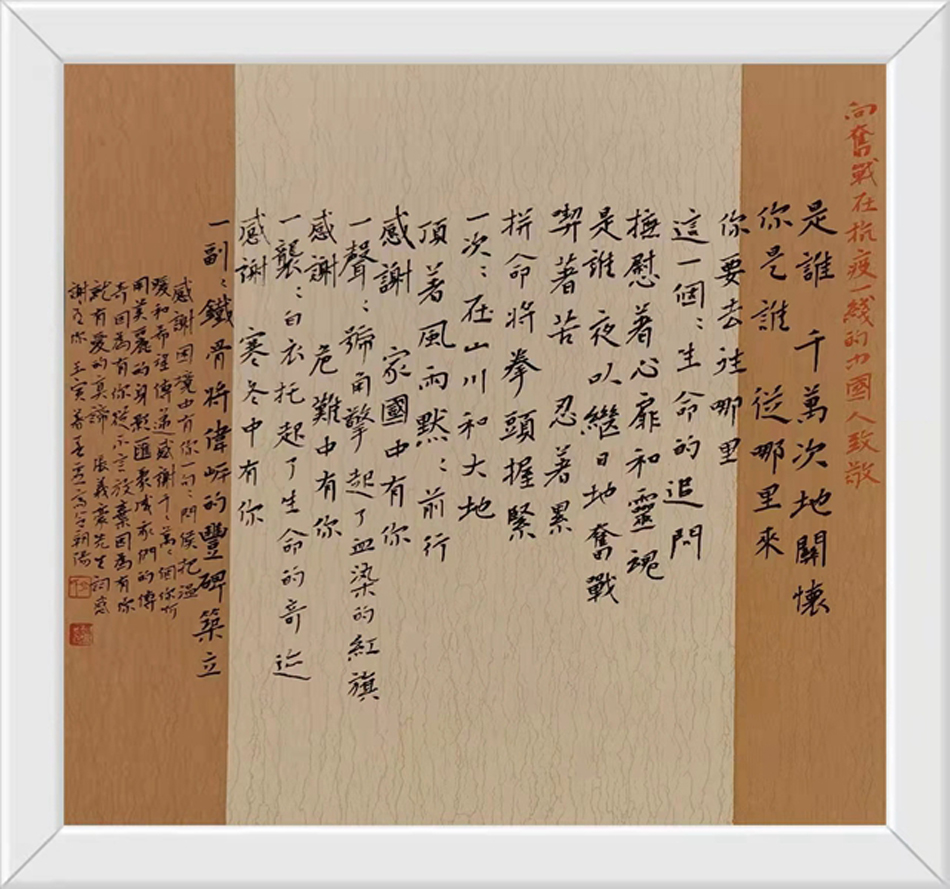 向奮戰在抗疫一綫的中國人致敬
是誰 千萬次地關懷
你是誰 從哪里來
你要去往哪里
這一個：生命的追問
撫慰著心扉和靈魂
是誰 夜以繼日地奮戰
喫著苦 忍著累
拼命將拳頭握緊
一次：在山川和大地
頂著風雨默：前行
感謝 家國中有你
一聲：號角擎起了血染的紅旗
感謝 危難中有你
一襲：白衣托起了生命的奇迹
感謝 寒冬中有你
一副：鐵骨將偉岸的豐碑築立
感謝困境中有你一句：問候把溫
暖和希望傳遞感謝千萬：個你
用美麗的身影匯聚成我們的傳
奇因為有你從不言放棄因為有你
就有愛的真諦 張義豪先生詞感
謝有你 壬寅